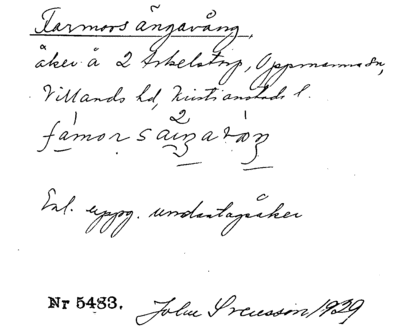 Farmors ängavång,
åker å 2 Arkelstorp, Oppmanna sn,
Villands hd, Kristianstads l.
Enl. uppg. undantagsåker
Nr 5483. John Svensson 1929